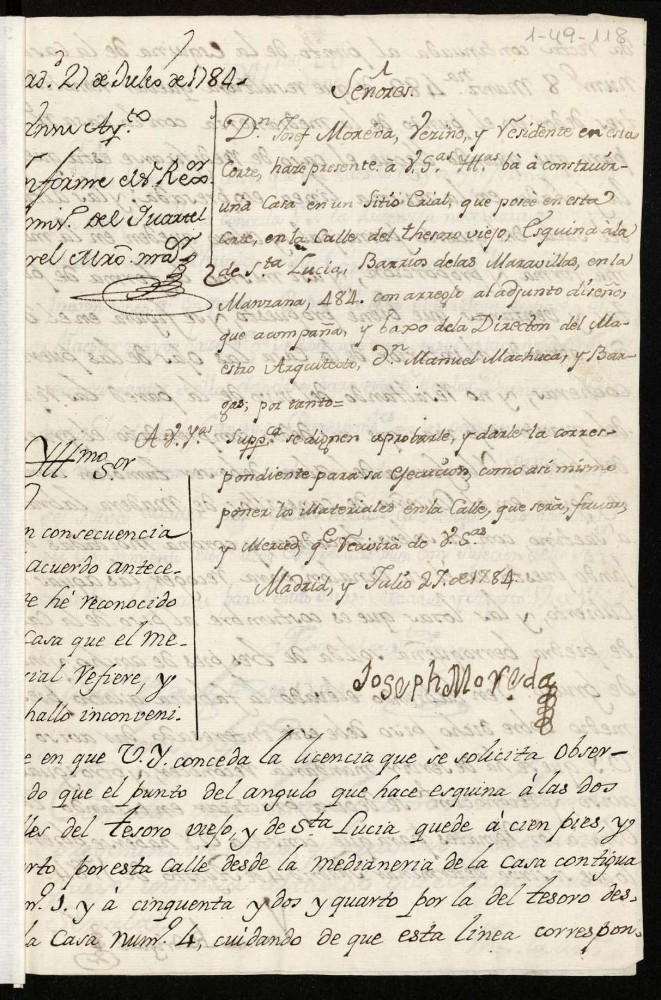 1-49-118
ad.d 27 de Julio de 1784.
Señores.
Enmi Ay.to
nforme el S.r Rexor
omis.o del Quartel
rel Mro. maor
D.n Josef Moreda, Vezino, y Residente en esta
Corte, haze presente. a V.S.as Yll.as bà à construir
una Casa en un Sitio Erial, que posee en esta
Corte, en la Calle del thesoro viejo, Esquina à la
de S.ta Lucia, Barrios de las Maravillas, en la
Manzana, 484. con arreglo al adjunto diseño,
que acompaña, y baxo dela Direccion del Ma-
estro Arquitecto, d.n Manuel Machuca, y Bar-
gas; por tanto=
A V.Y.as Supp.ca se dignen aprobarle, y darle la corres-
pondiente para sa Ejecucion, como asi mismo
poner los Materiales en la Calle, que serà, favor,
y Merced, q.e Recivirà de V.S.as
Madrid, y Julio 27. de 1784.
Joseph Moreda
Yll.mo S.or
n consecuencia
acuerdo antece-
e hé reconocido
casa que el me-
rial Refiere, y
hallo inconveni-
e en que V.Y. conceda la licencia que se solicita obser-
do que el punto del angulo que hace esquina à las dos
lles del tesoro viejo, y de S.ta Lucia quede à cien pies, y
rto por esta calle desde la medianeria de la casa contigua
m.o 1. y à cinquenta y dos y quarto por la del tesoro des-
la Casa num.o 4, cuidando de que esta linea correspon-